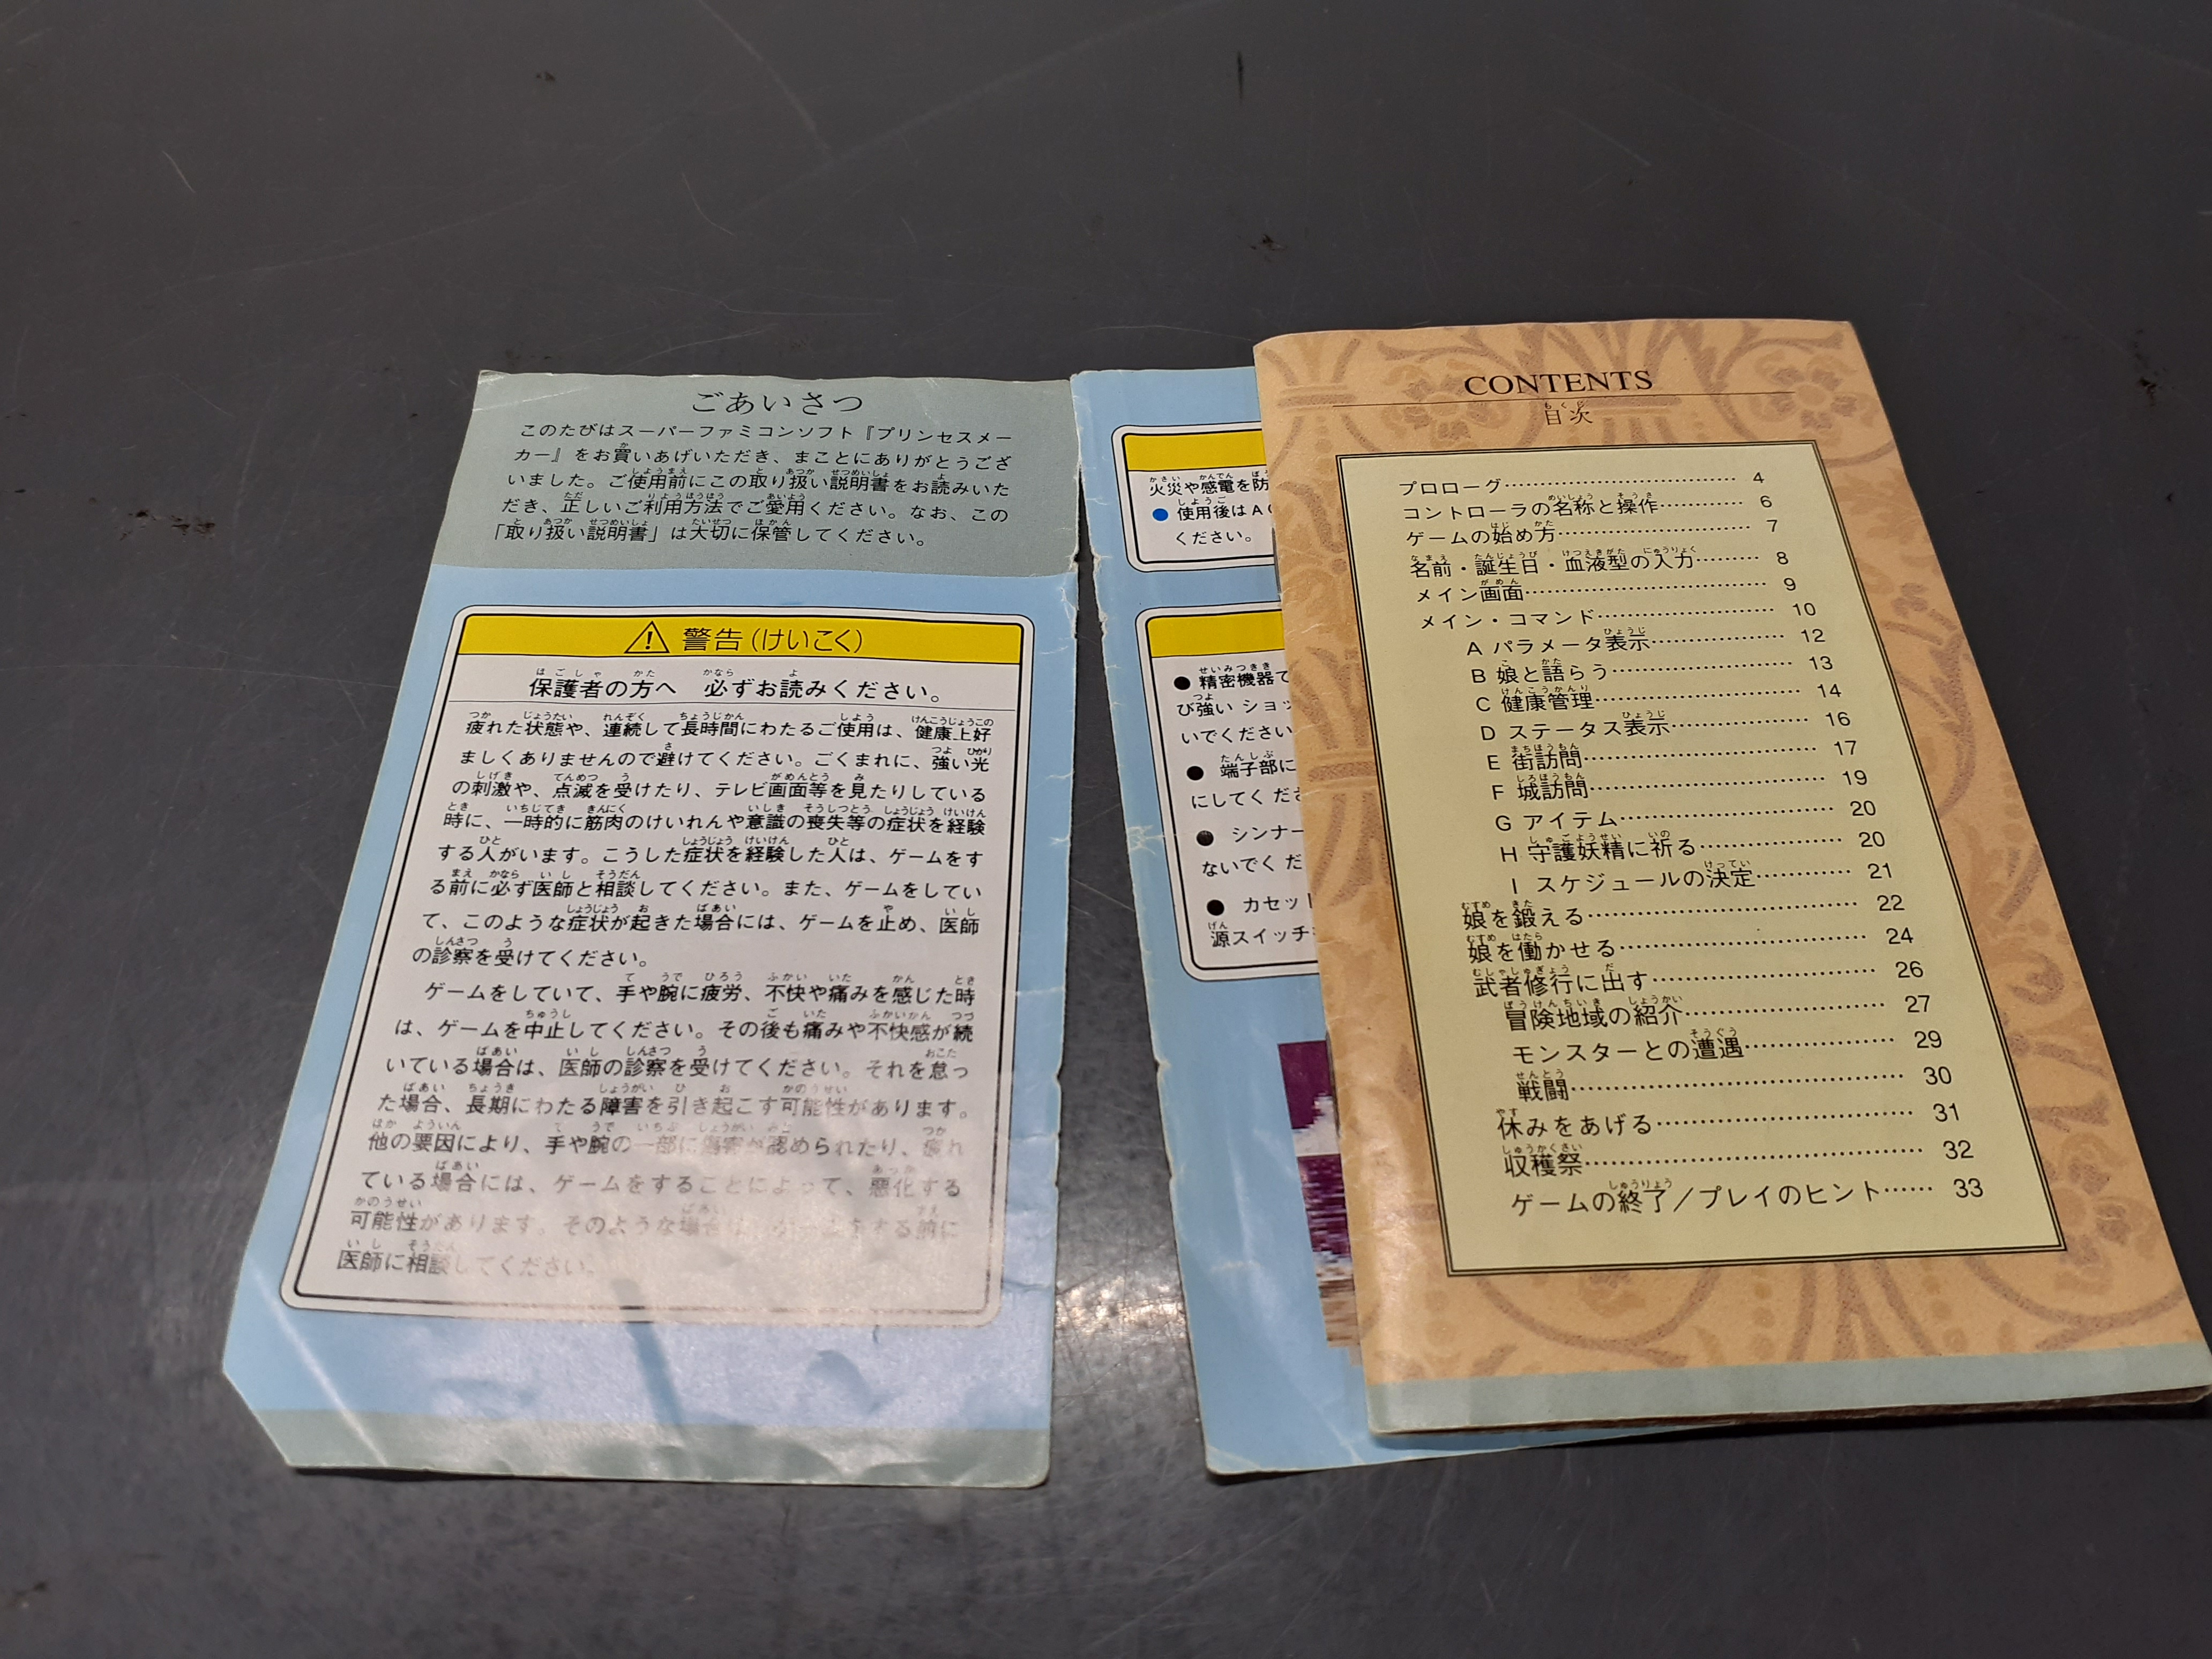 ごあいさつ
このたびはスーパーファミコンソフト『プリンセスメー
カー』をお買いあげいただき、まことにありがとうござ
いました。ご使用前にこの取り扱い説明書をお読みいた
だき、正しいご利用方法でご愛用ください。なお、この
「取り扱い説明書」は大切に保管してください。
警告(けいこく)
保護者の方へ 必ずお読みください。
疲れた状態や、連続して長時間にわたるご使用は、健康上好
ましくありませんので避けてください。ごくまれに、強い光
の刺激や、点滅を受けたり、テレビ画面等を見たりしている
時に、一時的に筋肉のけいれんや意識の喪失等の症状を経験
する人がいます。こうした症状を経験した人は、ゲームをす
る前に必ず医師と相談してください。また、ゲームをしてい
て、このような症状が起きた場合には、ゲームを止め、医師
の診察を受けてください。
ゲームをしていて、手や腕に疲労、不快や痛みを感じた時
は、ゲームを中止してください。その後も痛みや不快感が続
いている場合は、医師の診察を受けてください。それを怠っ
た場合、長期にわたる障害を引き起こす可能性があります。
他の要因により、手や腕の一部に傷害が認められたり、疲れ
ている場合には、ゲームをすることによって、悪化する
可能性があります。そのような場合は する前に
医師に相談してください。
火災や感電を防
● 使用後はAC
ください。
● 精密機器で
び強いショッ
いでください
● 端子部に
にしてくださ
● シンナー
ないでくだ
● カセット
源スイッチ
CONTENTS
目次
プロローグ…………………………… 4
コントローラの名称と操作………… 6
ゲームの始め方……………………… 7
名前・誕生日・血液型の入力……… 8
メイン画面…………………………… 9
メイン・コマンド…………………… 10
A パラメータ表示………………… 12
B 娘と語らう……………………… 13
C 健康管理………………………… 14
D ステータス表示………………… 16
E 街訪問…………………………… 17
F 城訪問…………………………… 19
G アイテム………………………… 20
H 守護妖精に祈る………………… 20
I スケジュールの決定…………… 21
娘を鍛える…………………………… 22
娘を働かせる………………………… 24
武者修行に出す……………………… 26
冒険地域の紹介…………………… 27
モンスターとの遭遇……………… 29
戦闘………………………………… 30
休みをあげる………………………… 31
収穫祭………………………………… 32
ゲームの終了/プレイのヒント…… 33